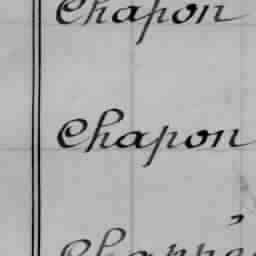 Chapon
Chapon